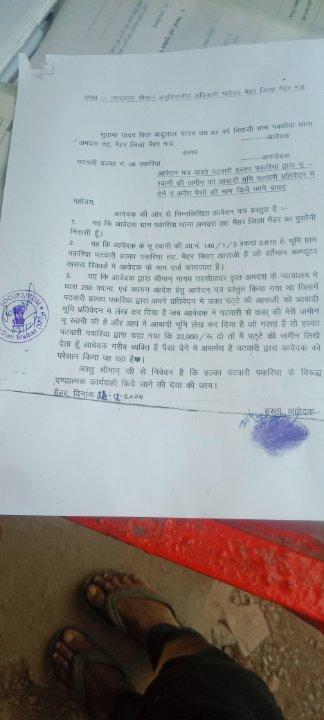 समक्ष :- न्यायालय श्रीमान् अनुविभागीय अधिकारी महोदय मैहर जिला मैहर म.प्र.
सुदामा यादव पिता बाबूलाल यादव उम्र 63 वर्ष निवासी ग्राम पकरिया थाना
अमदरा तह. मैहर जिला मैहर म.प्र. —आवेदक
बनाम
पटवारी हल्का नं. 08 पकरिया —अनावेदक
आवेदन पत्र वास्ते पटवारी हल्का पकरिया द्वारा भू –
स्वामी की जमीन को आबादी भूमि पटवारी प्रतिवेदन में
देने व अवैध पैसों की मांग किये जाने बावत्
महोदय,
आवेदक की ओर से निम्नलिखित आवेदन पत्र प्रस्तुत है :-
1. यह कि आवेदक ग्राम पकरिया थाना अमदरा तह. मैहर जिला मैहर का पुस्तैनी
निवासी हूँ।
2. यह कि आवेदक के भू स्वामी की आ.नं. 140/1/3 रकवा 0.010 हे. भूमि ग्राम
पकरिया पटवारी हल्का पकरिया तह. मैहर स्थित आराजी है जो वर्तमान कम्प्यूटर
खसरा रिकार्ड में आवेदक के नाम दर्ज कागजात है।
3. यह कि आवेदक द्वारा श्रीमान् नायब तहसीलदार वृत्त अमदरा के न्यायालय में
धारा 250 का.मा. एवं स्थगन आदेश हेतु आवेदन पत्र प्रस्तुत किया गया था जिसमें
पटवारी हल्का पकरिया द्वारा अपने प्रतिवेदन में उक्त पट्टे की आराजी को आबादी
भूमि प्रतिवेदन में लेख कर दिया है जब आवेदक ने पटवारी से कहा की मेरी जमीन
भू स्वामी की है और आप ने आबादी भूमि लेख कर दिया है जो गलत है तो हल्का
पटवारी पकरिया द्वारा कहा गया कि 20,000/रू दो तो मैं पट्टे की जमीन लिखे
देता हूँ आवेदक गरीब व्यक्ति है पैसा देने मे असमर्थ है पटवारी द्वारा आवेदक को
परेसान किया जा रहा है।
अस्तु श्रीमान् जी से निवेदन है कि हल्का पटवारी पकरिया के विरूद्ध
दण्डात्मक कार्यवाही किये जाने की दया की जाय।
मैहर, दिनांक -12-2024
हस्ता. आवेदक